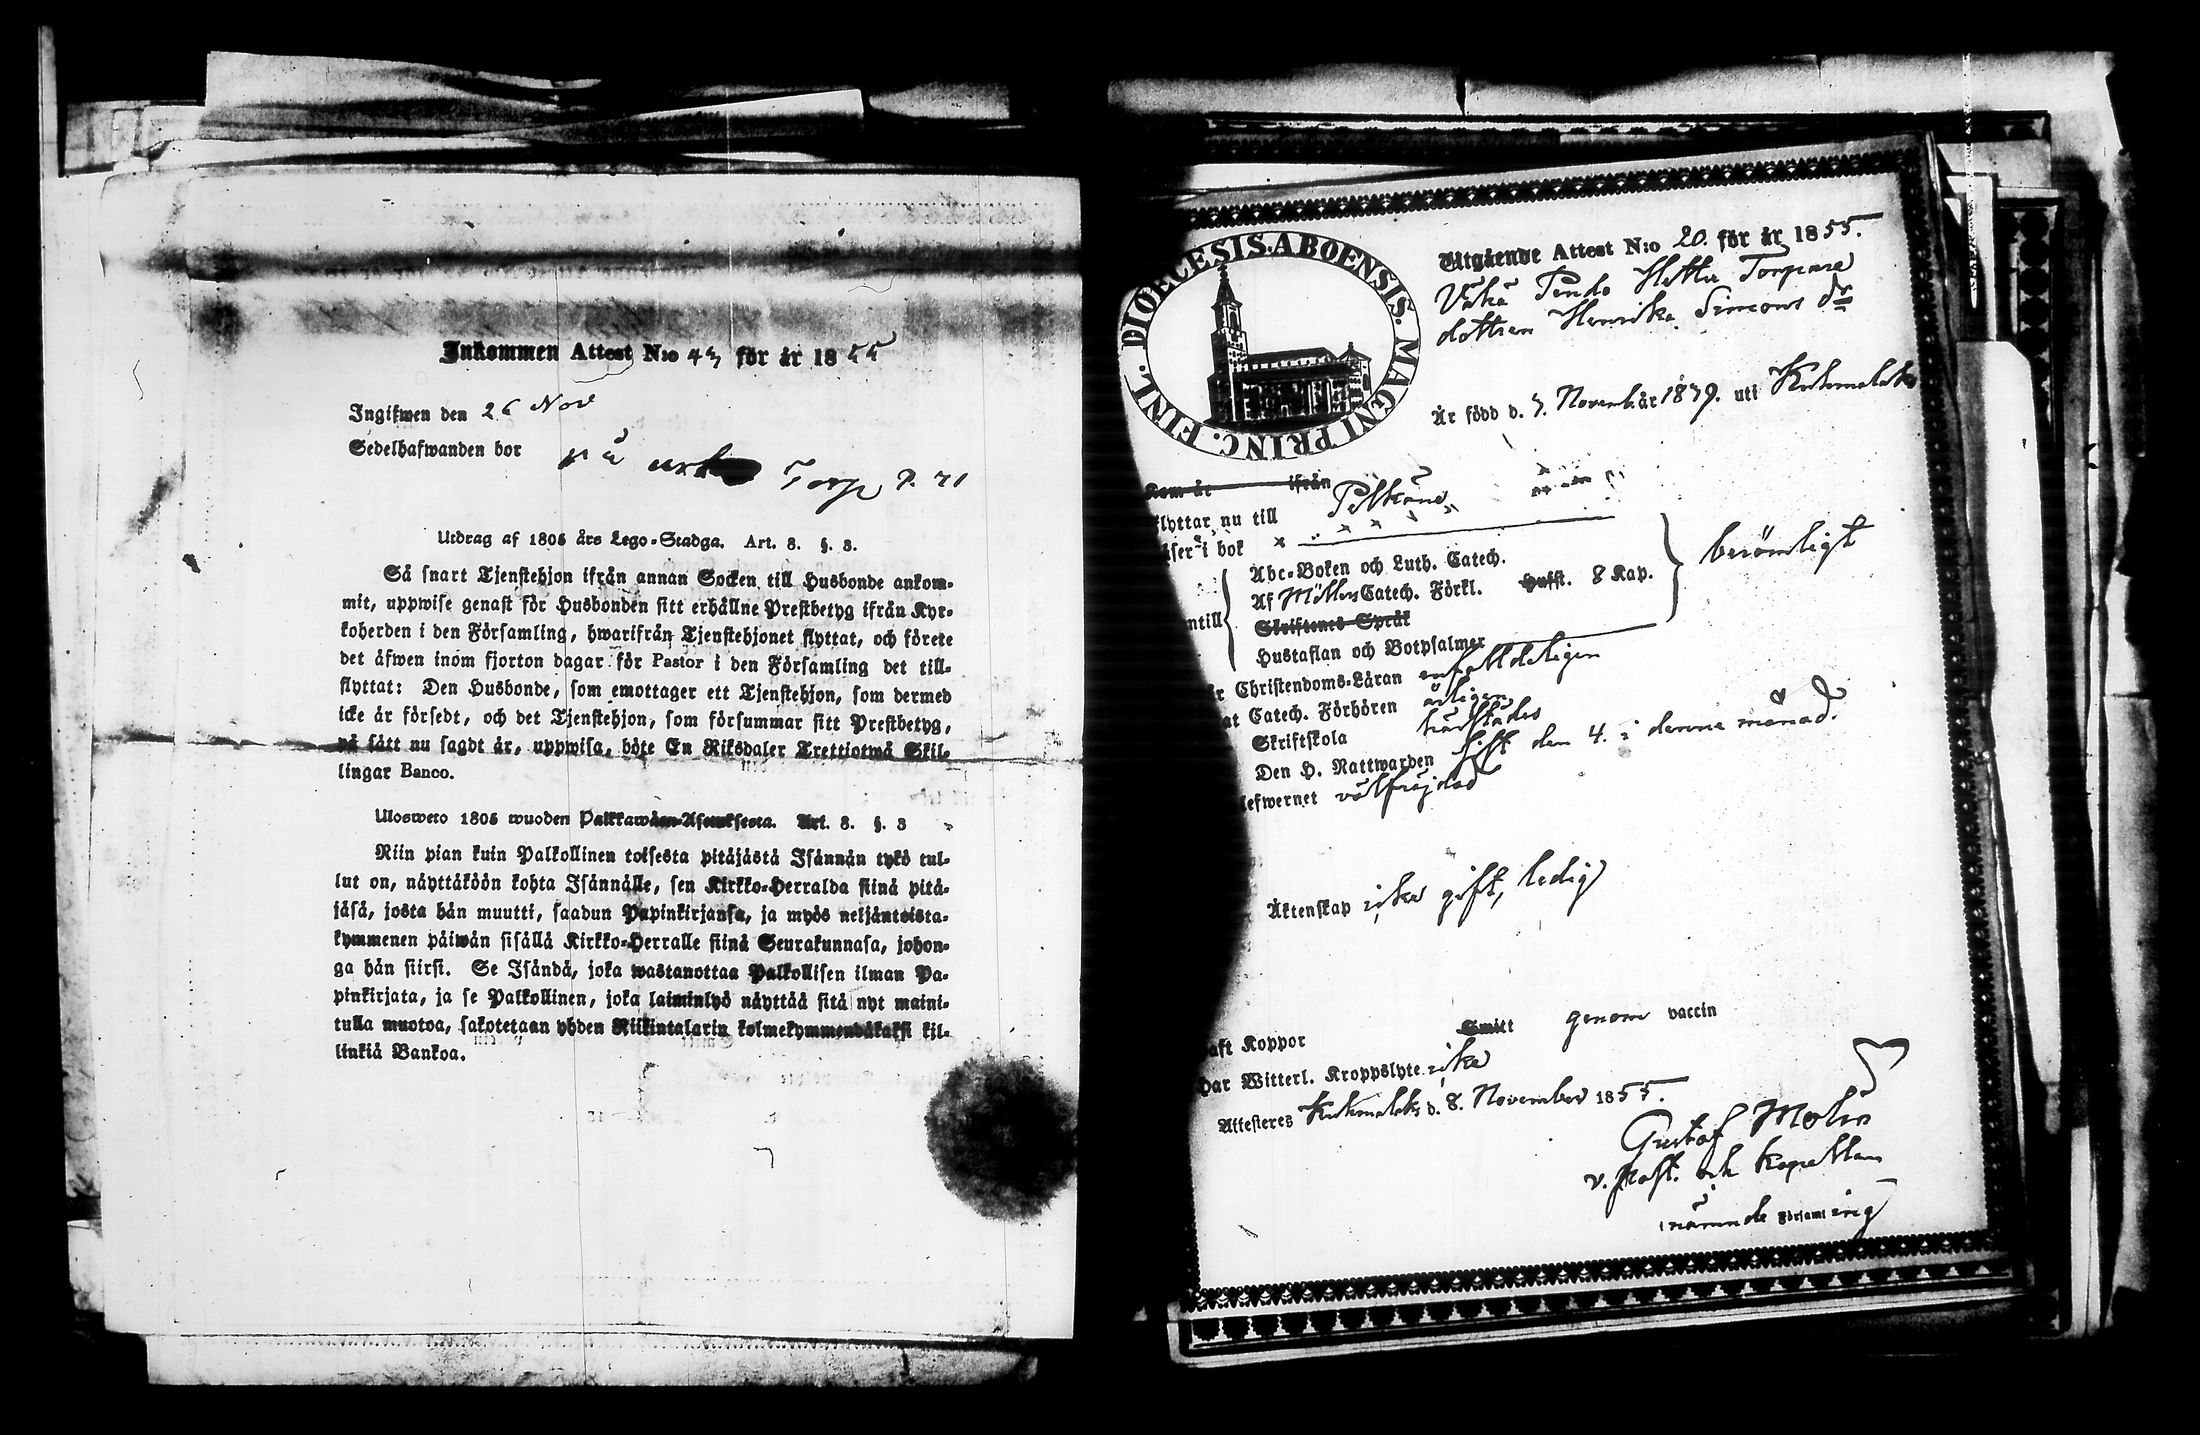 Inkommen Attest N:o 43 för år 1855
Ingifwen den 26 Nov
Sedelhafwanden bor på Torp P. 71
Utdrag af 1805 års Lego-Stadga. Art. 8. §. 3.
Så snart Tjenstehjon ifrån annan Socken till Husbonde ankom-
mit, uppwise genast för Husbonden sitt erhållne Prestbetyg ifrån Kyr-
koherden i den Församling, hwarifrån Tjenstehjonet flyttat, och förete
det äfwen inom fjorton dagar för Pastor i den Församling det till-
flyttat: Den Husbonde, som emottager ett Tjenstehjon, som dermed
icke är försedt, och det Tjenstehjon, som försummar sitt Prestbetyg,
på sätt nu sagdt är, uppwisa, böte En Riksdaler Trettiotwå Skil-
lingar Banco.
Ulosweto 1805 wuoden Palkkawäen-Asetuksesta. Art. 8. §. 3
Niin pian kuin Palkollinen toisesta pitäjästä Isännän tykö tul-
lut on, näyttäköön kohta Isännälle, sen Kirkko-Herralda siinä pitä-
jäsä, josta hän muutti, saadun Papinkirjansa, ja myös neljäntoista-
kymmenen päiwän sisällä Kirkko-Herralle siinä Seurakunnasa, johon-
ga hän siirsi. Se Isändä, joka wastanottaa Palkollisen ilman Pa-
pinkirjata, ja se Palkollinen, joka laiminlyö näyttää sitä nyt maini-
tulla muotoa, sakotetaan yhden Riikintalarin kolmekymmendäkaksi kil-
linkiä Bankoa.
FINL. DIOECESIS. ABOENSIS. MAGNI PRINC.
Utgående Attest N:o 20. för år 1855.
Torpare
dottren Henrika Simons dr
Är född d. 7. Novemb. år 1839. uti Kuhmalaks
Kom år ifrån
flyttar nu till Pelkäne
läser i bok
Abc-Boken och Luth. Catech.
Af Möllers Catech. Förkl. Husst. 8 Kap. berömligt
ntill Skriftenes Språk
Hustaflan och Botpsalmer
r Christendoms-Läran enfalldeligen
at Catech. Förhören årligen
Skriftskola härstädes
Den H. Nattwarden sist den 4. i denna månad.
lefwernet välfrejdad
Äktenskap icke gift, ledig
aft Koppor Smitt genom vaccin
Har Witterl. Kroppslyte icke
Attesteres Kuhmalaks d. 8. November 1855.
Gustaf Molin
v. Past. och Kapellan
i nämnde Församling